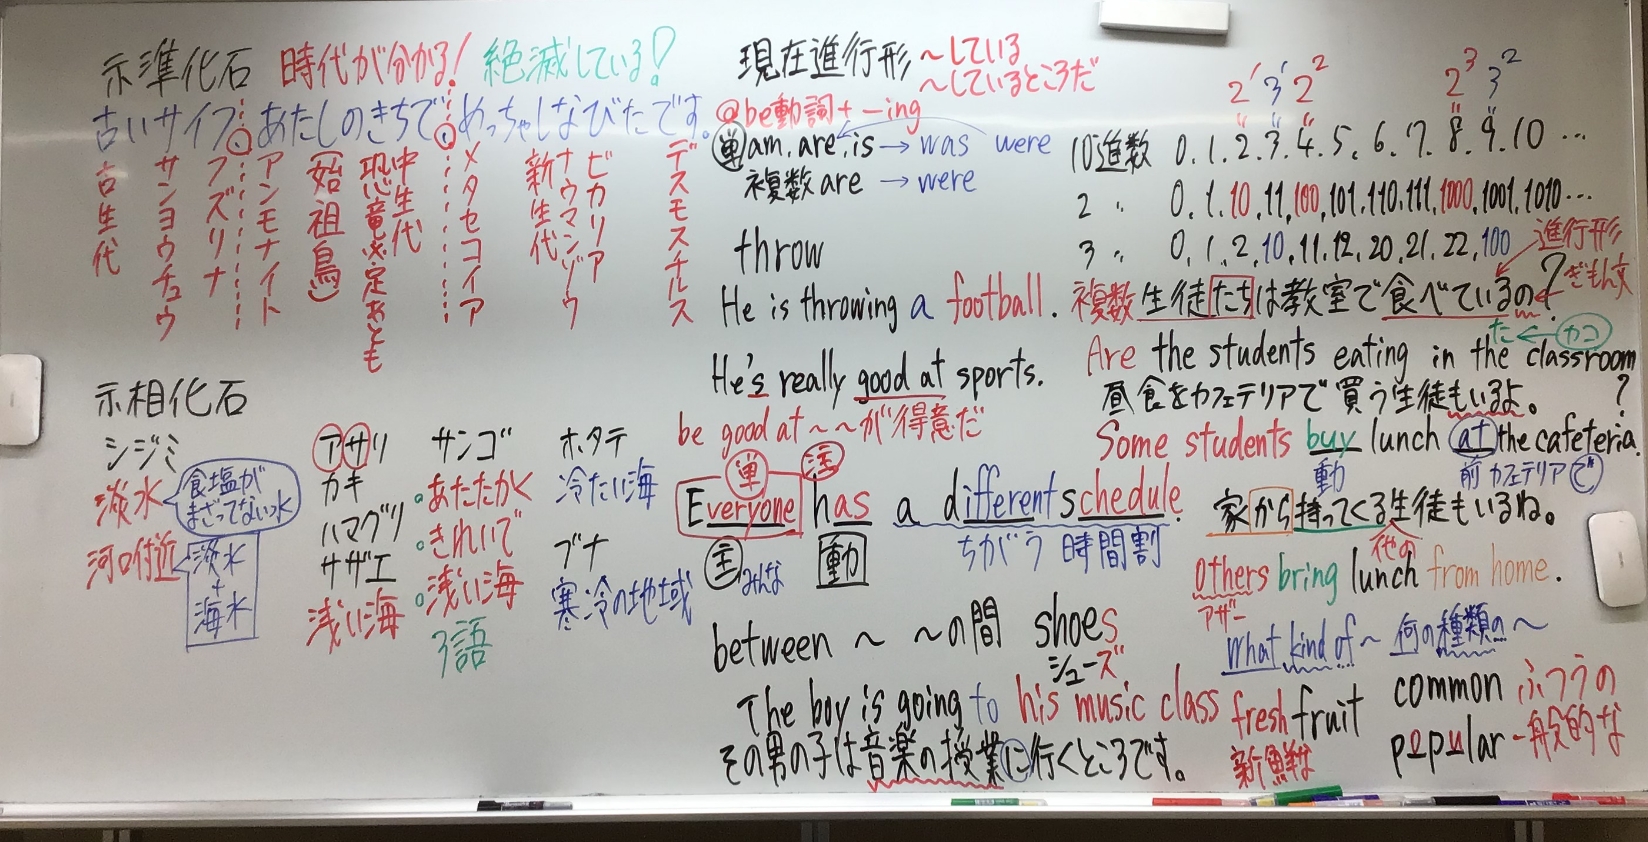 示準化石 時代が分かる! 絶滅している!
古いサイフ。あたしのきちで。めっちゃしなびたです。
古生代
サンヨウチュウ
フズリナ
アンモナイト
(始祖鳥)
中生代
メタセコイア
新生代
ナウマンゾウ
ビカリア
デスモスチルス
示相化石
シジミ
淡水
食塩が
まざってない水
河口付近
淡水
+
海水
アサリ
カキ
ハマグリ
サザエ
浅い海
サンゴ
。あたたかく
。きれいで
。浅い海
3語
ホタテ
冷たい海
ブナ
寒冷の地域
現在進行形 ~している
~しているところだ
@be動詞+-ing
単 am, are, is → was were
複数 are → were
throw
He is throwing a football.
He's really good at sports.
be good at ~ ~が得意だ
単 活
Everyone has a different schedule.
主 みんな 動 ちがう 時間割
between ~ ~の間 shoes
シューズ
The boy is going to his music class
その男の子は音楽の授業に行くところです。
2¹ 3¹ 2² 2³ 3²
10進数 0. 1. 2. 3. 4. 5. 6. 7. 8. 9. 10 …
2 〃 0. 1. 10. 11. 100. 101. 110. 111. 1000. 1001. 1010 …
3 〃 0. 1. 2. 10. 11. 12. 20. 21. 22. 100
進行形
ぎもん文
複数 生徒たちは教室で食べているの?
た ← カコ
Are the students eating in the classroom?
昼食をカフェテリアで買う生徒もいるよ。
Some students buy lunch at the cafeteria.
動 前 カフェテリアで
家から持ってくる生徒もいるね。
他の
Others bring lunch from home.
アザー
What kind of ~ 何の種類の~
fresh fruit
新鮮な
common ふつうの
popular 一般的な